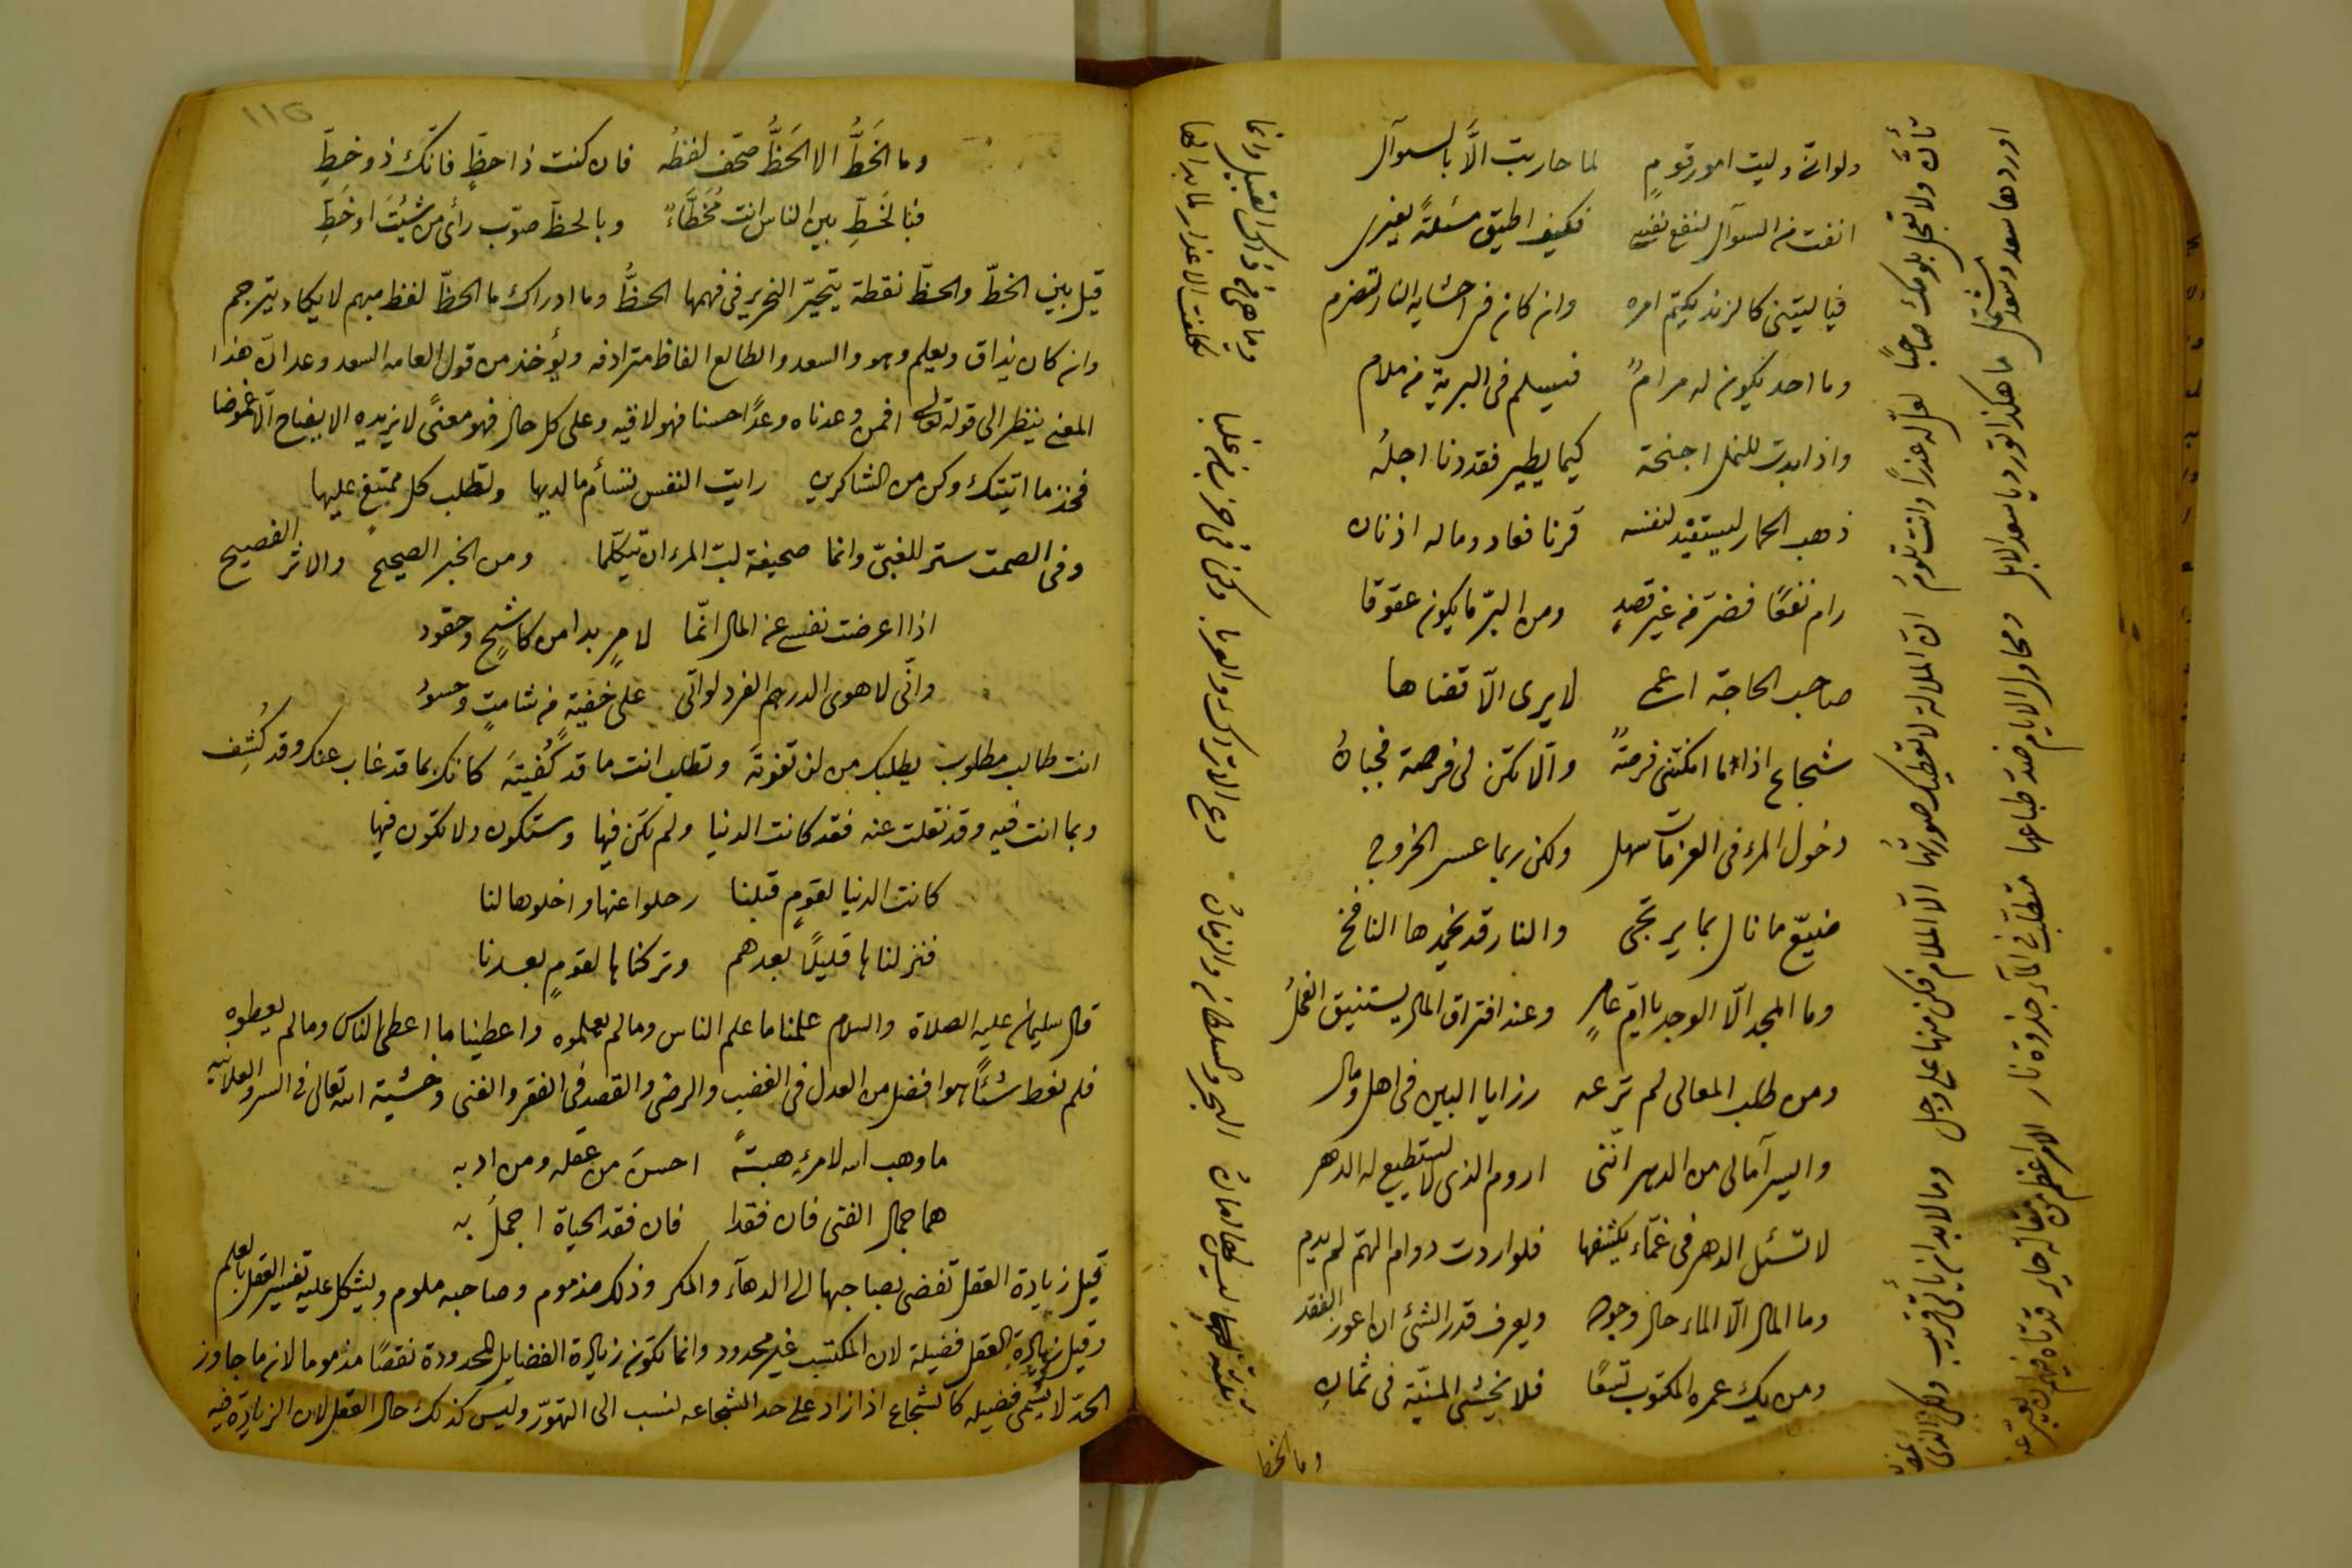 ولو انى وليت امور قوم لما حاربت الّا بالسوآل
انفت من السوآل لنفع نفسى فكيف اطيق مسئلةً لغيرى
فيا ليتنى كالزند يكتم امره وان كان فى احشايه النار تضرم
وما احد يكون له مرامٌ فيسلم فى البرية من ملام
واذا بدت للنمل اجنحة كيما يطير فقد دنا اجلُه
ذهب الحمار ليستفيد لنفسه قرنا فعاد وماله اذنان
رام نفعًا فضرّ من غير قصدٍ ومن البرّ ما يكون عقوقا
صاحب الحاجة اعمى لا يرى الّا قضاها
شجاع اذا ما امكنتنى فرصةٌ والّا تكن لى فرصة فجبانُ
دخول المرء فى العزمات سهل ولكن ربما عسر الخروج
ضيّع ما نال بما يرتجى والنار قد يخمدها النافخ
وما المجد الّا الوجد يا امّ عامرٍ وعند افتراق المال يستنيق الفحلُ
ومن طلب المعالى لم ترعه رزايا البين فى اهل ومال
وايسر آمالى من الدهر اننى اروم الذى لا يستطيع له الدهر
لا تسئل الدهر فى غمّاء يكشفها فلو اردت دوام الهمّ لم يدم
وما المال الّا الماء حال وجوده ويعرف قدر الشئ ان اعوز الفقد
ومن يك عمره المكتوب تسعًا فلا يخشى المنيّة فى ثمانِ
وما الخط
تأنّ ولا تعجل بلومك صاحبًا لعلّ له عذرًا وانت تلوم
اوردها سعد وسعد مشتمل ما هكذا تورد يا سعد الابل
ومكلف الايام ضدّ طباعها متطلب فى المآء جذوة نار
١١٥
وما الخَطُّ الا الحَظُّ صحّف لفظُه فان كنت ذا حظٍ فانّك ذو خطِّ
فبالخَطِّ بين الناس انت مُخَطَّاءٌ وبالحظّ صوّب رأى من شئتَ او خَطِّ
قيل بين الخطّ والحظّ نقطة يتحيّر النحرير فى فهمها الحظُّ وما ادراك ما الحظّ لفظ مبهم لا يكاد يترجم
وان كان يذاق ويعلم وهو والسعد والطالع الفاظ مترادفه ويؤخذ من قول العامه السعد وعد انّ هذا
المعنى ينظر الى قوله تعالى افمن وعدناه وعدًا حسنا فهو لاقيه وعلى كل حال فهو معنىً لا يزيده الايضاح الّا غموضا
فخذ ما اتيتك وكن من الشاكرين رايت النفس تسأم ما لديها وتطلب كل ممتنع عليها
وفى الصمت ستر للغبىّ وانما صحيفة لبّ المرء ان يتكلّما ومن الخبر الصحيح والاثر الفصيح
اذا اعرضت نفسى عن المال انّما لامرٍ بدا من كاشحٍ وحقود
وانّى لاهوى الدرهم الفرد لو اتى على خفيةٍ من شامتٍ وحسود
انت طالب مطلوب يطلبك من لن تفوته وتطلب انت ما قد كُفيتَه كانك بما قد غاب عنك وقد كُشِف
وبما انت فيه وقد نقلت عنه فقد كانت الدنيا ولم تكن فيها وستكون ولا تكون فيها
كانت الدنيا لقومٍ قبلنا رحلوا عنها واخلوها لنا
فنزلناها قليلًا بعدهم وتركناها لقومٍ بعدنا
قال سليمان عليه الصلاة والسلام علمنا ما علم الناس وما لم يعلموه واعطينا ما اعطى الناس وما لم يعطوه
فلم نعط شئًا هو افضل من العدل فى الغضب والرضى والقصد فى الفقر والغنى وخشية الله تعالى فى السر والعلانيه
ما وهب الله لامرءٍ هبةً احسنَ من عقله ومن ادبه
هما جمال الفتى فان فقدا فان فقد الحياة اجملُ به
قيل زيادة العقل تفضى بصاحبها الى الدهآء والمكر وذلك مذموم وصاحبه ملوم ويشكل عليه تفسير العقل بالعلم
وقيل زيادة العقل فضيلة لان المكتسب غير محدود وانما تكون زيادة الفضايل المحدودة نقصًا مذموما لان ما جاوز
الحدّ لا يسمى فضيله كالشجاع اذا زاد على حد الشجاعه نسب الى التهوّر وليس كذلك حال العقل لان الزيادة فيه